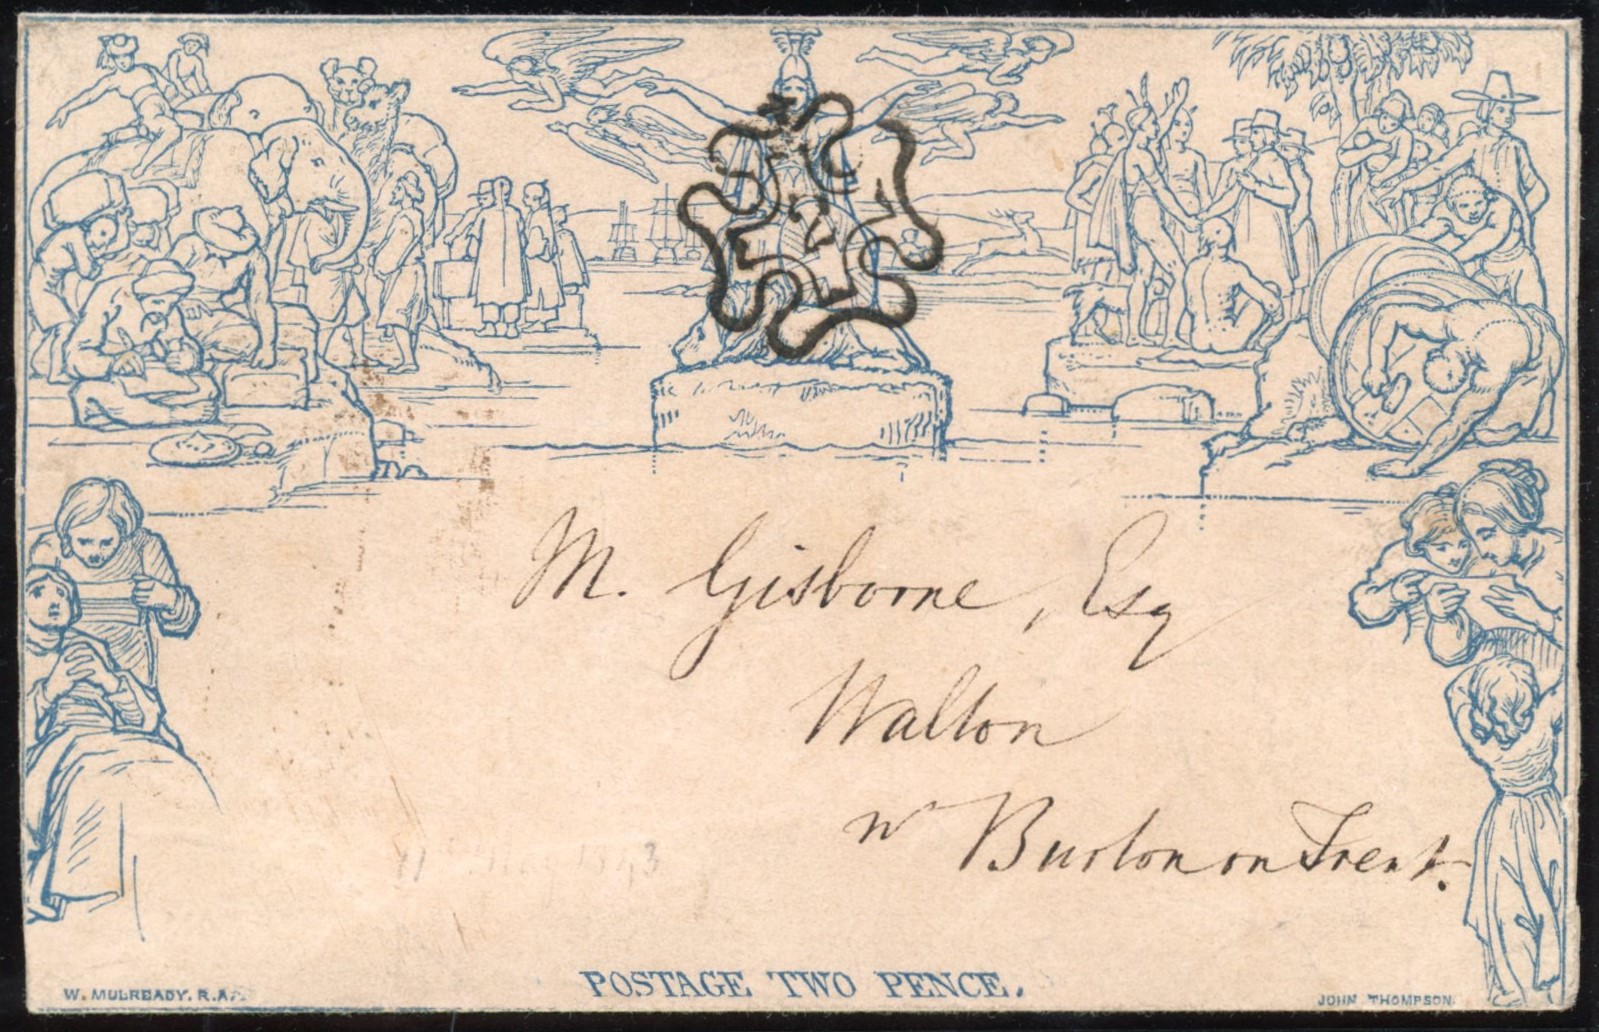 2
M. Gisborne, Esq
Walton
nr Burton on Trent.
11th May 1843
POSTAGE TWO PENCE.
W. MULREADY. R.A.
JOHN THOMPSON.